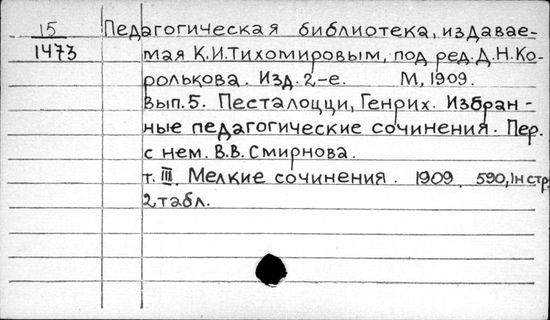 15 Педагогическая библиотека, издавае-
1473 мая К.И.Тихомировым, под ред. Д.Н.Ко-
ролькова. Изд. 2-е. М, 1909.
вып. 5. Песталоцци, Генрих. Избран-
ные педагогические сочинения. Пер.
с нем. В.В.Смирнова.
т. III. Мелкие сочинения. 1909. 590, 1н стр.
2 табл.